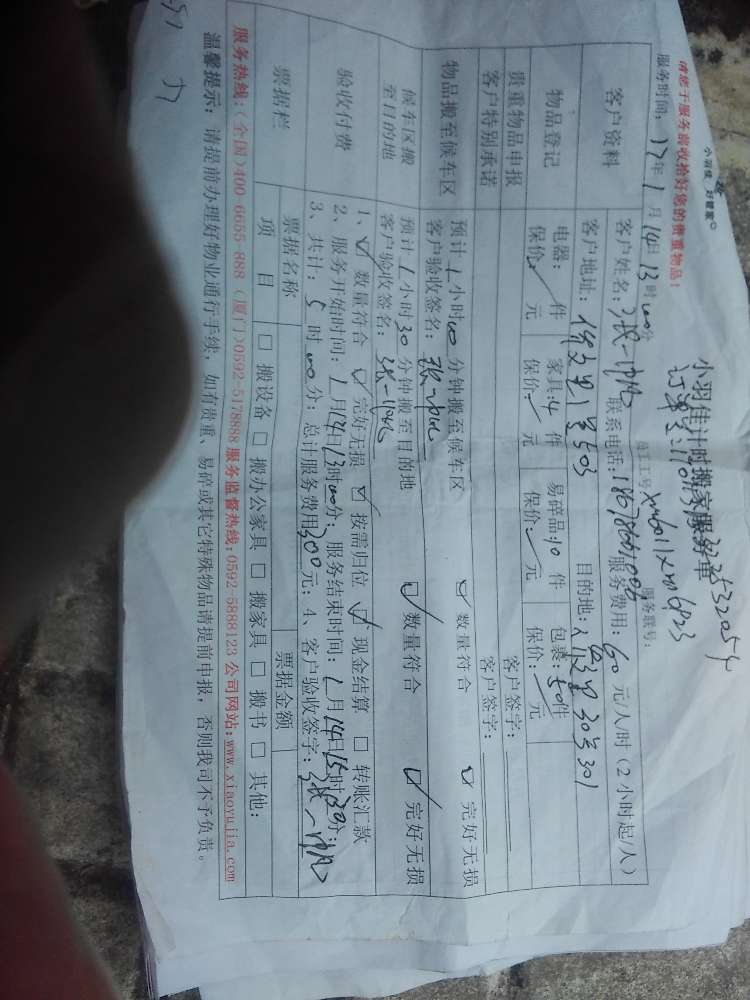 小羽佳 好管家
小羽佳计时搬家服务单
请您于服务前收拾好您的贵重物品!
员工工号: xm6011 xm6923
服务联号:
服务时间: 17年1月14日13时00分
客户资料
客户姓名: 联系电话: 服务费用: 60元/人/时(2小时起/人)
客户地址: 目的地:
物品登记
电器: 件 家具: 4件 易碎品: 10件 包裹: 50件
保价: 元 保价: 元 保价: 元 保价: 元
贵重物品申报
客户签字:
客户特别承诺
客户签字:
物品搬至候车区
预计1小时00分钟搬至候车区
客户验收签名: ☑ 数量符合 ☑ 完好无损
候车区搬至目的地
预计1小时30分钟搬至目的地
客户验收签名: ☑ 数量符合 ☑ 完好无损
验收付费
1、☑ 数量符合 ☑ 完好无损 ☑ 按需归位 ☑ 现金结算 □ 转账汇款
2、服务开始时间: 1月14日13时00分; 服务结束时间: 1月14日15时30分;
3、共计: 5时00分; 总计服务费用300元; 4、客户验收签字:
票据栏
票据名称 票据金额
项 目 □ 搬设备 □ 搬办公家具 □ 搬家具 □ 搬书 □ 其他:
服务热线:(全国)400-6655-888 (厦门)0592-5178888 服务监督热线:0592-5888123 公司网站:www.xiaoyujia.com
温馨提示: 请提前办理好物业通行手续, 如有贵重、易碎或其它特殊物品请提前申报, 否则我司不予负责。